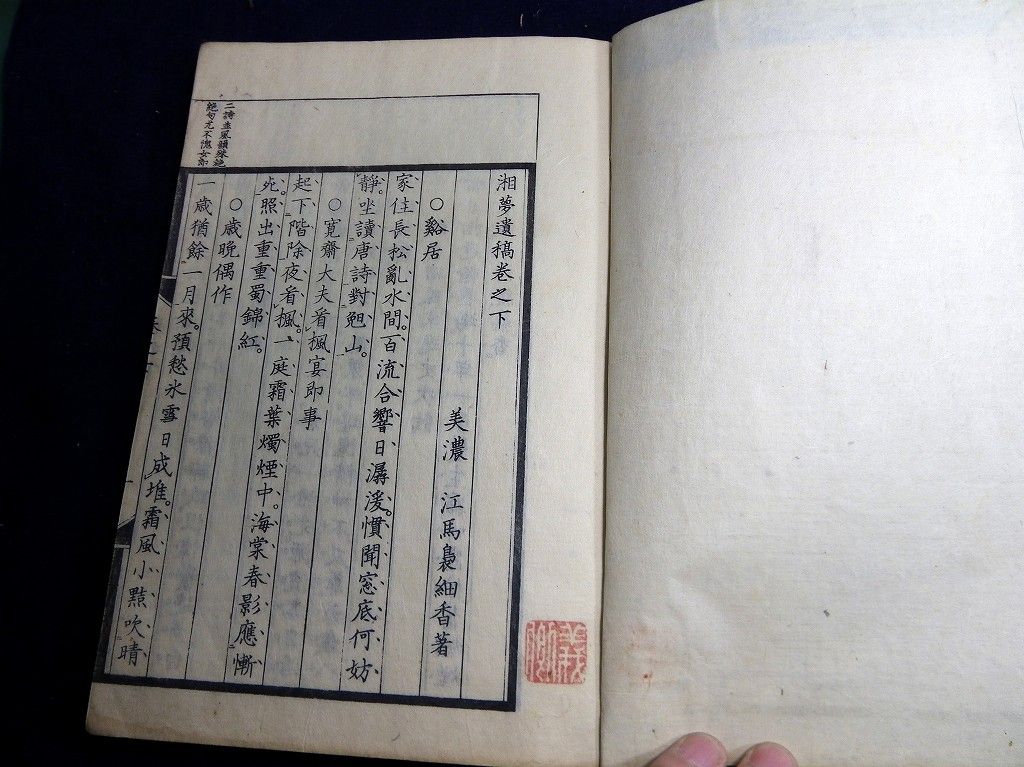 湘夢遺稿卷之下
美濃 江馬裊細香著
○谿居
家住長松亂水間。百流合響日潺湲。慣聞窓底何妨
靜。坐讀唐詩對剋山。
○寛齋大夫看楓宴即事
起下階除夜看楓。一庭霜葉燭煙中。海棠春影應慚
死。照出重重蜀錦紅。
○歳晩偶作
一歳猶餘一月來。預愁氷雪日成堆。霜風小㸃吹晴
二詩並風韻殊絶
絶句尤不愧女郎